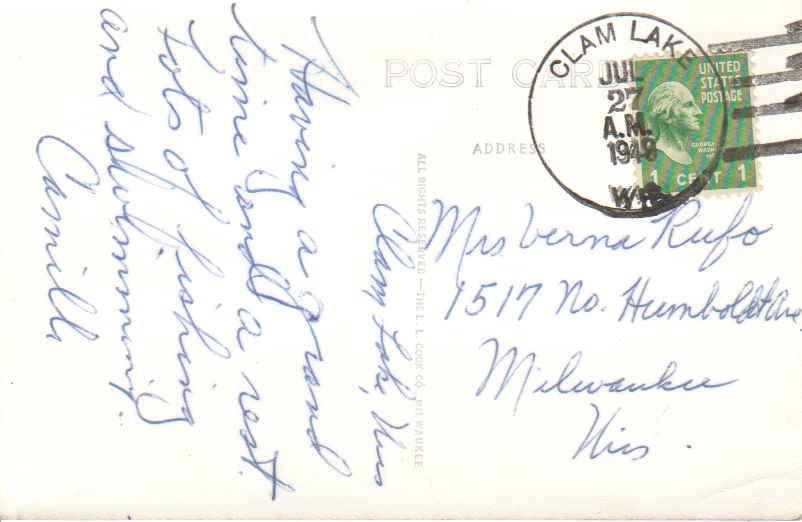 Clam Lake, Wis
Having a grand
time and a rest
Lots of fishing
and swimming.
Camill
POST CARD
ADDRESS
ALL RIGHTS RESERVED—THE L. L. COOK CO. MILWAUKEE
CLAM LAKE
JUL
27
A.M.
1948
WIS.
UNITED
STATES
POSTAGE
GEORGE
1 CENT 1
Mrs Verna Rufo
1517 No. Humboldt Ave
Milwaukee
Wis.